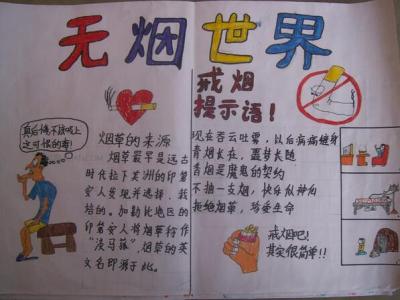 无烟世界
戒烟
提示语!
真后悔不该吸上
这可恨的毒!
烟草的来源
烟草最早是远古
时代拉丁美洲的印第
安人发现并选择、栽
培的。加勒比地区的
印第安人将烟草称作
“淡马菰”,烟草的英
文名即源于此。
现在吞云吐雾,以后病痛缠身
青烟长在,噩梦长随
香烟是魔鬼的契约
不抽一支烟,快乐似神仙
拒绝烟草,珍爱生命
戒烟吧!
其实很简单!!